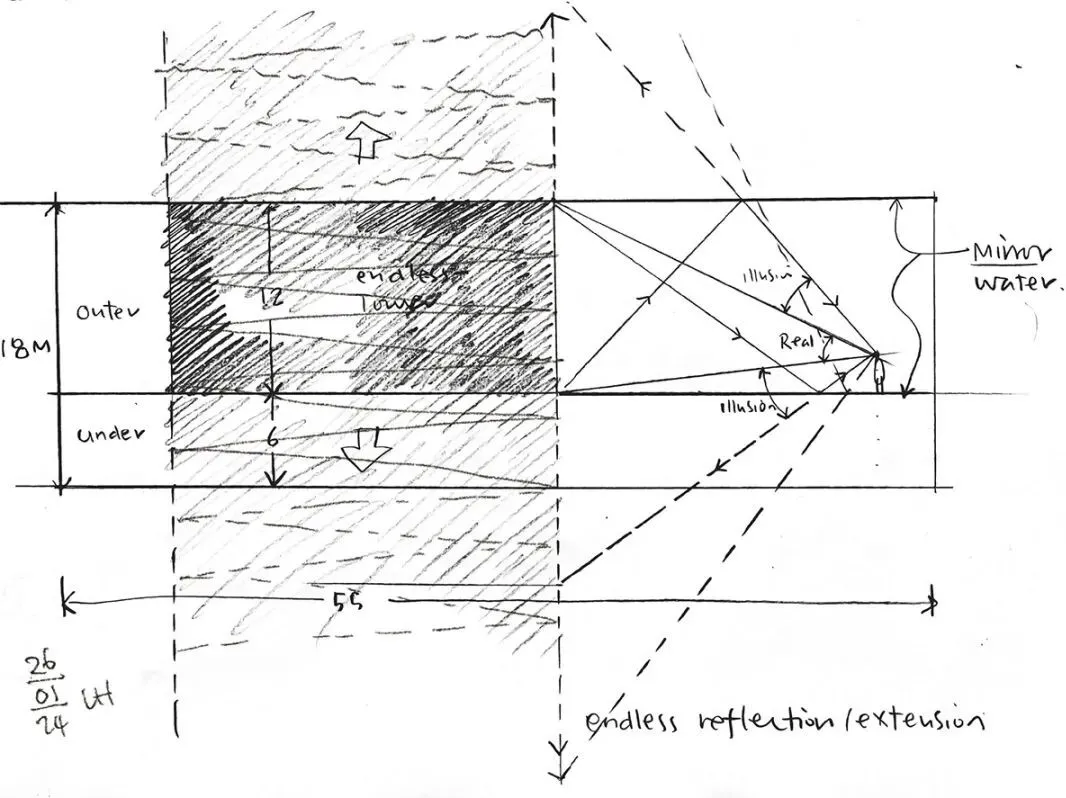 endless
Tower
12
Outer
18M
Under
6
Illusion
Real
Illusion
Mirror
water.
55
26
01
24
endless reflection/extension